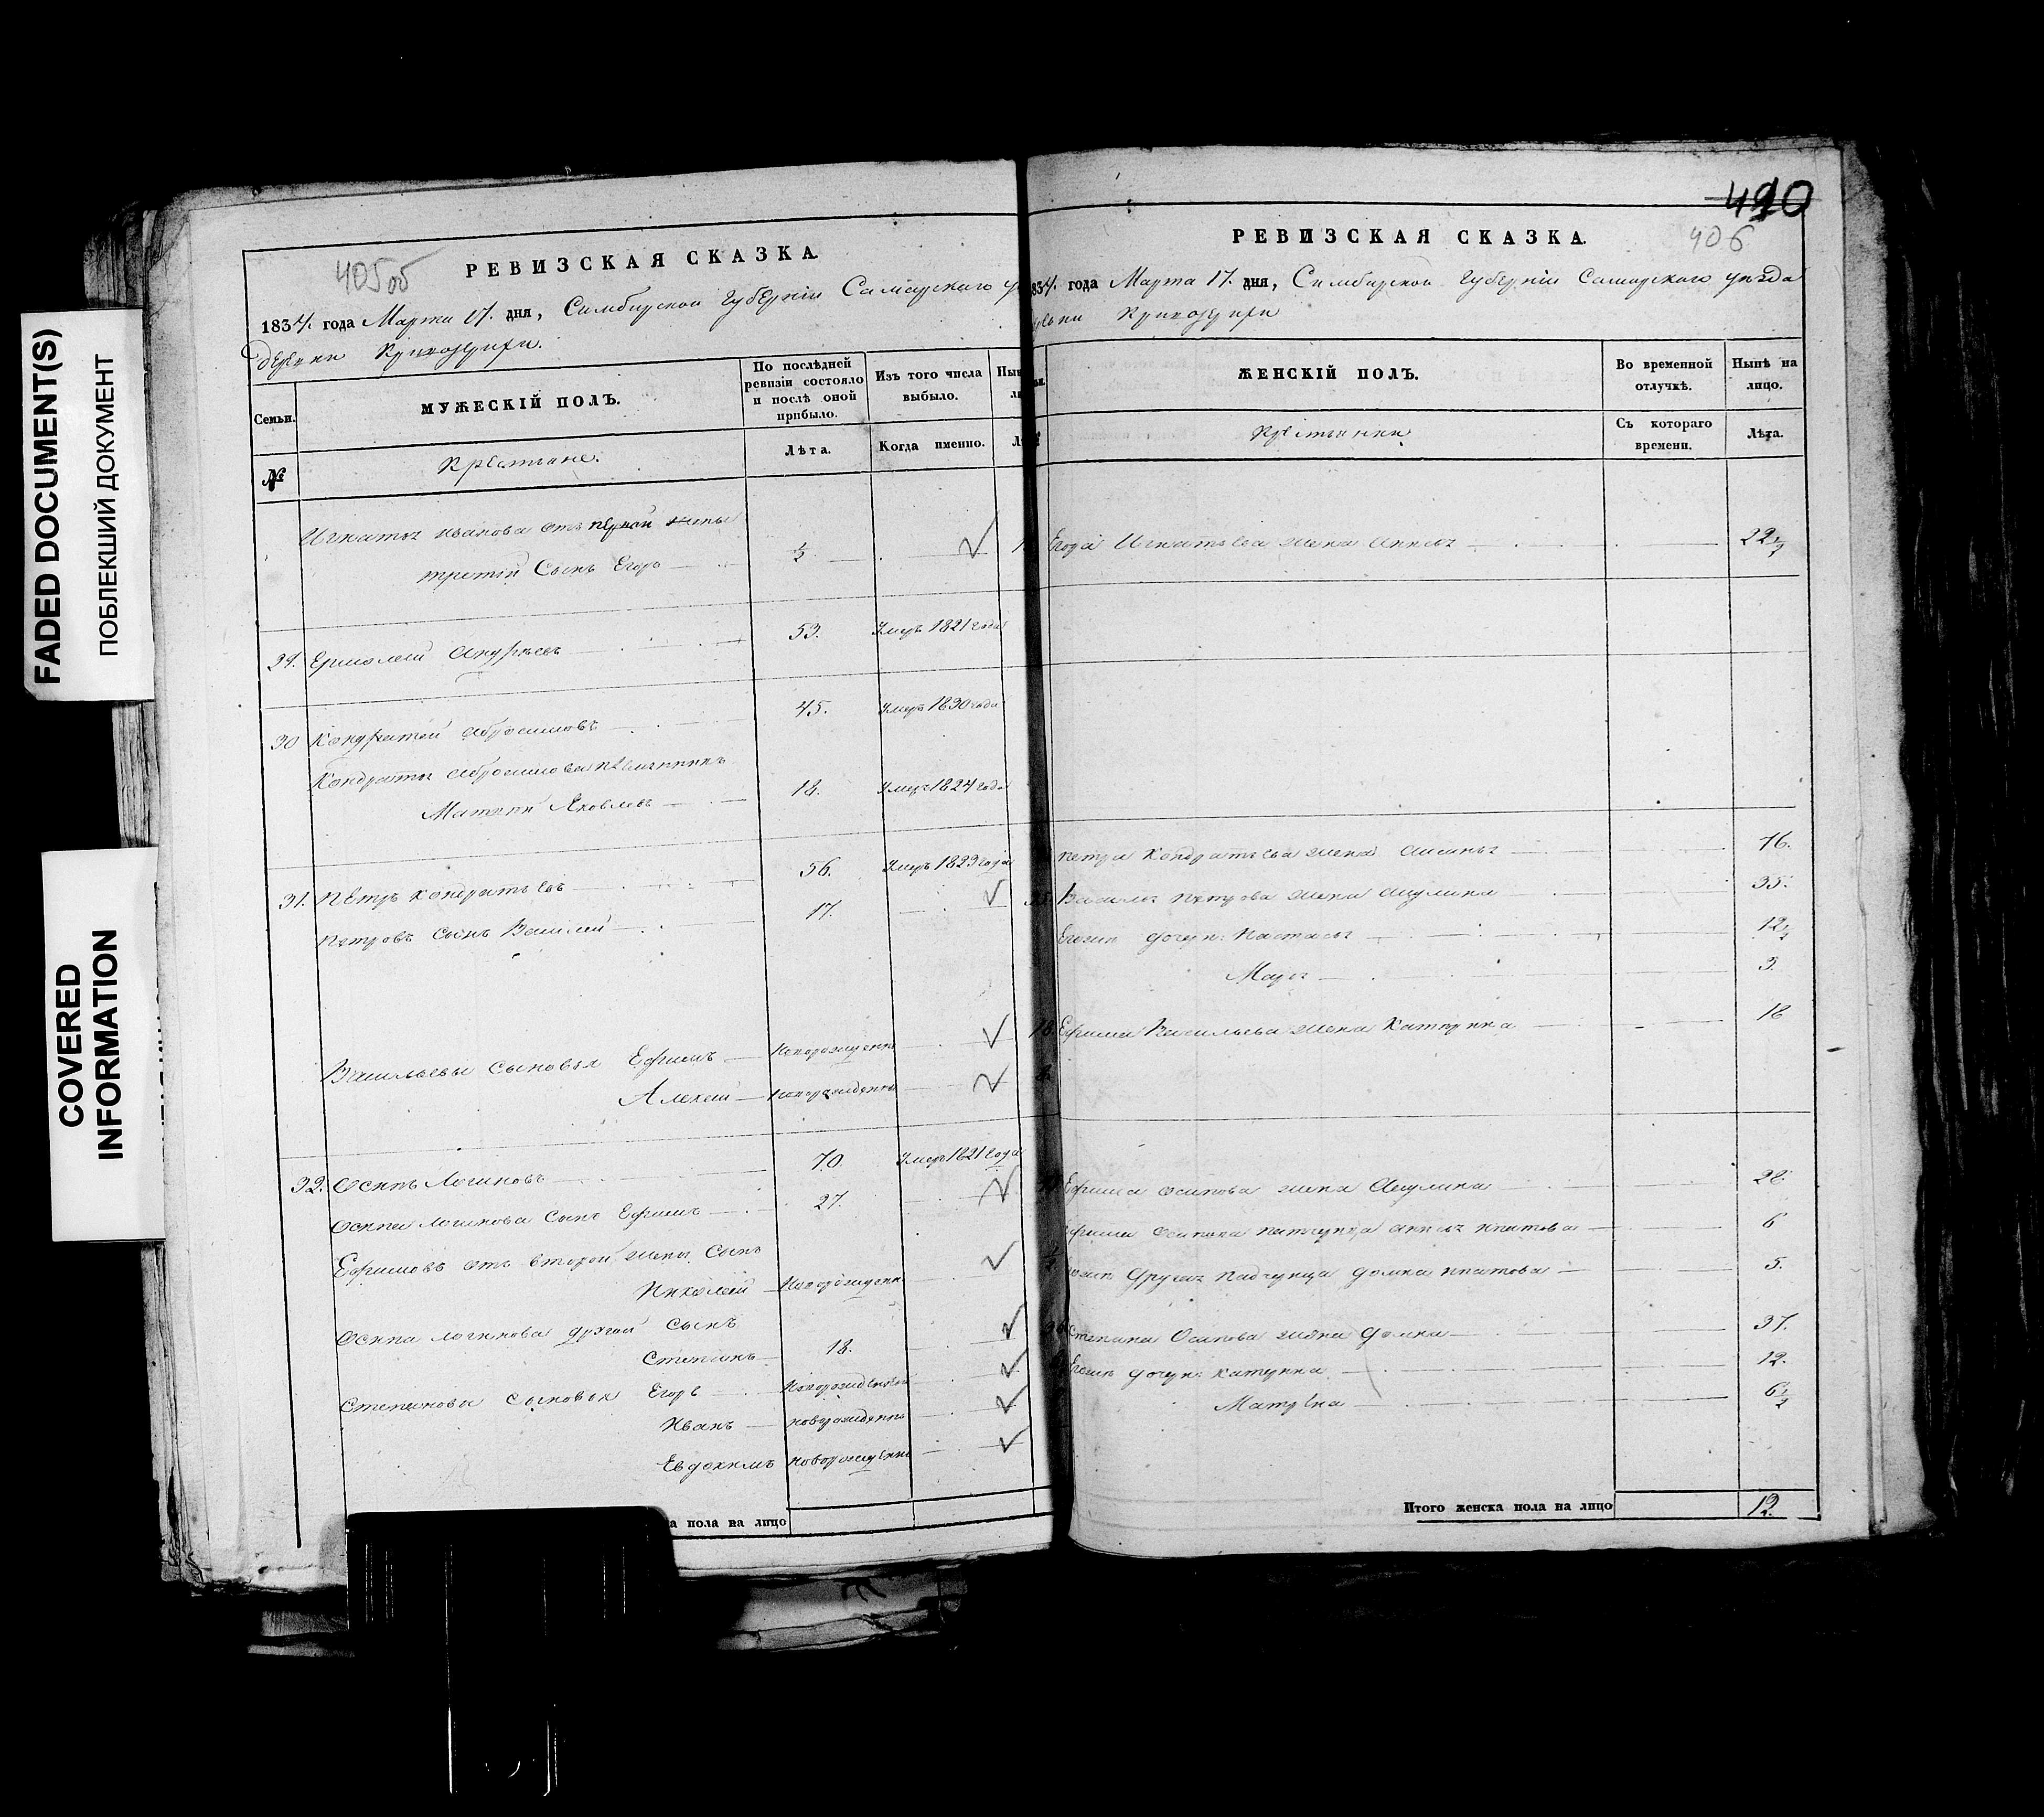 FADED DOCUMENT(S)
ПОБЛЕКШИЙ ДОКУМЕНТ
COVERED
INFORMATION
405об
РЕВИЗСКАЯ СКАЗКА.
1834. года Марта 17. дня, Симбирской Губерніи Самарского
деревни
Семьи.
МУЖЕСКІЙ ПОЛЪ.
По послѣдней ревизіи состояло и послѣ оной прибыло.
Изъ того числа выбыло.
№
Крестьяне.
Лѣта.
Когда именно.
Игнатья Иванова отъ первой жены
третій Сынъ Егоръ ½
29. Ермолай Андреевъ 53. Умеръ 1821 года
30 Кондратей Абросимовъ 45. Умеръ 1830 года
Кондратья Абросимова племянникъ
Матвей Яковлевъ 18. Умеръ 1824 года
31. Петръ Кондратьевъ 56. Умеръ 1829 года
Петровъ Сынъ Василей 17.
Васильевы Сыновья Ефимъ новорожденны
Алексей новорожденны
32. Осипъ Логиновъ 70. Умеръ 1821 года
Осипа Логинова Сынъ Ефимъ 27.
Ефимовъ отъ второй жены Сынъ
Николай новорожденн
Осипа Логинова другой Сынъ
Степанъ 18.
Степановы Сыновья Егоръ новорожденны
Иванъ новорожденны
Евдокимъ новорожденны
а пола на лицо
490
406
РЕВИЗСКАЯ СКАЗКА.
834. года Марта 17. дня, Симбирской Губерніи Самарского уѣзда
ЖЕНСКІЙ ПОЛЪ.
Во временной отлучкѣ.
Нынѣ на лицо.
Крестьянки
Съ котораго времени.
Лѣта.
Егора Игнатьева жена Анисья 22½
Петра Кондратьева жена 76.
Василья Петрова жена Акулина 35.
Егожъ дочери: Настасья 12½
Марья 3.
Ефима Васильева жена Катерина 18
Ефима Осипова жена Акулина 28.
Ефима Осипова падчерица Анисья Ипатова 6
Егожъ другая падчерица Домна Ипатова 5.
Степана Осипова жена Домна 37.
Егожъ дочери: Катерина 12.
Матрена 6½
Итого женска пола на лицо 12.